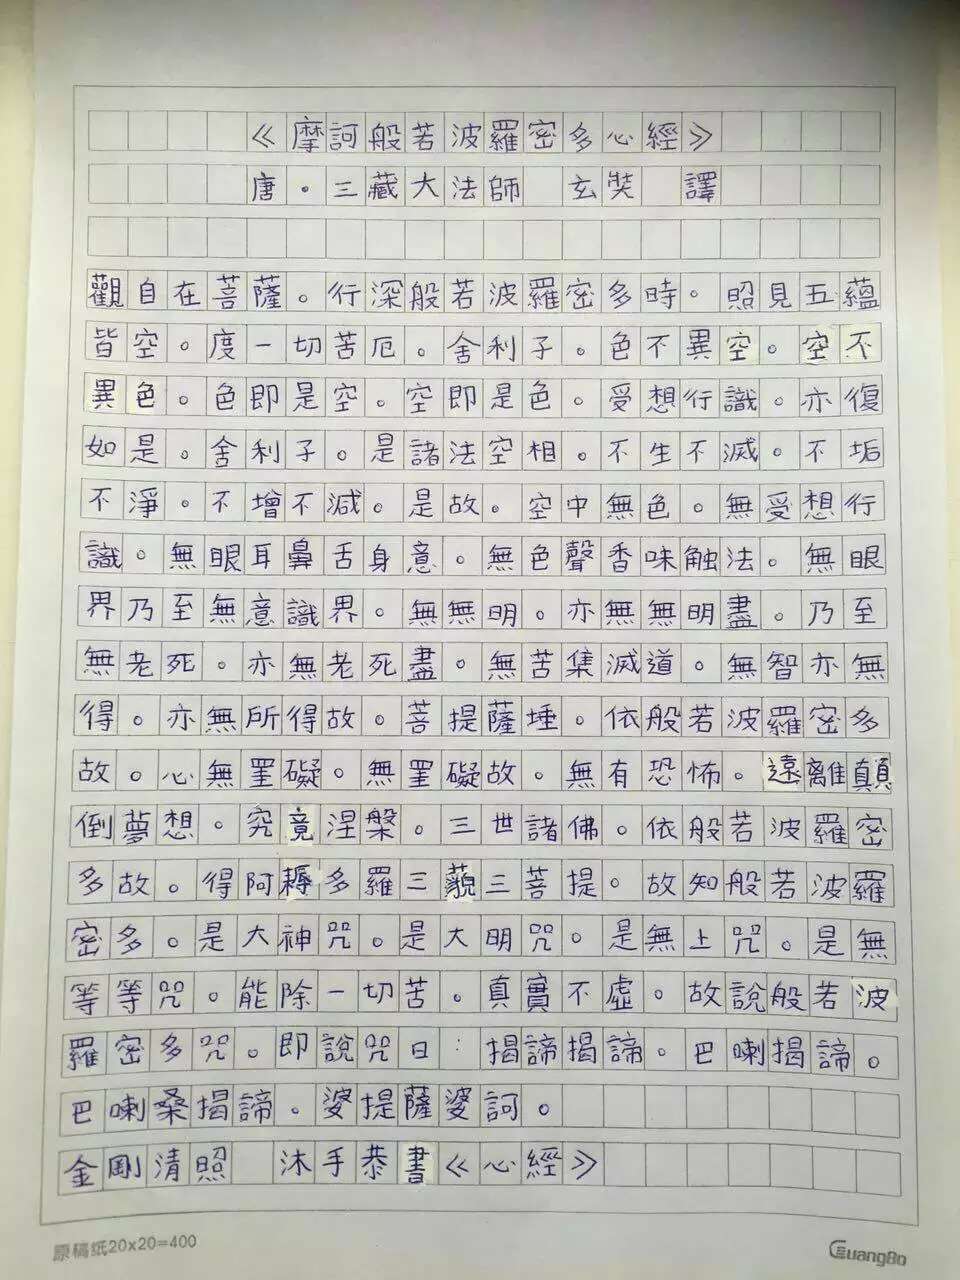 《摩訶般若波羅密多心經》
唐。三藏大法師 玄奘 譯
觀自在菩薩。行深般若波羅密多時。照見五蘊
皆空。度一切苦厄。舍利子。色不異空。空不
異色。色即是空。空即是色。受想行識。亦復
如是。舍利子。是諸法空相。不生不滅。不垢
不淨。不增不減。是故。空中無色。無受想行
識。無眼耳鼻舌身意。無色聲香味触法。無眼
界乃至無意識界。無無明。亦無無明盡。乃至
無老死。亦無老死盡。無苦集滅道。無智亦無
得。亦無所得故。菩提薩埵。依般若波羅密多
故。心無罣礙。無罣礙故。無有恐怖。遠離顛
倒夢想。究竟涅槃。三世諸佛。依般若波羅密
多故。得阿耨多羅三藐三菩提。故知般若波羅
密多。是大神咒。是大明咒。是無上咒。是無
等等咒。能除一切苦。真實不虛。故說般若波
羅密多咒。即說咒曰：揭諦揭諦。巴喇揭諦。
巴喇桑揭諦。婆提薩婆訶。
金剛清照 沐手恭書《心經》
原稿纸20x20=400
GuangBo